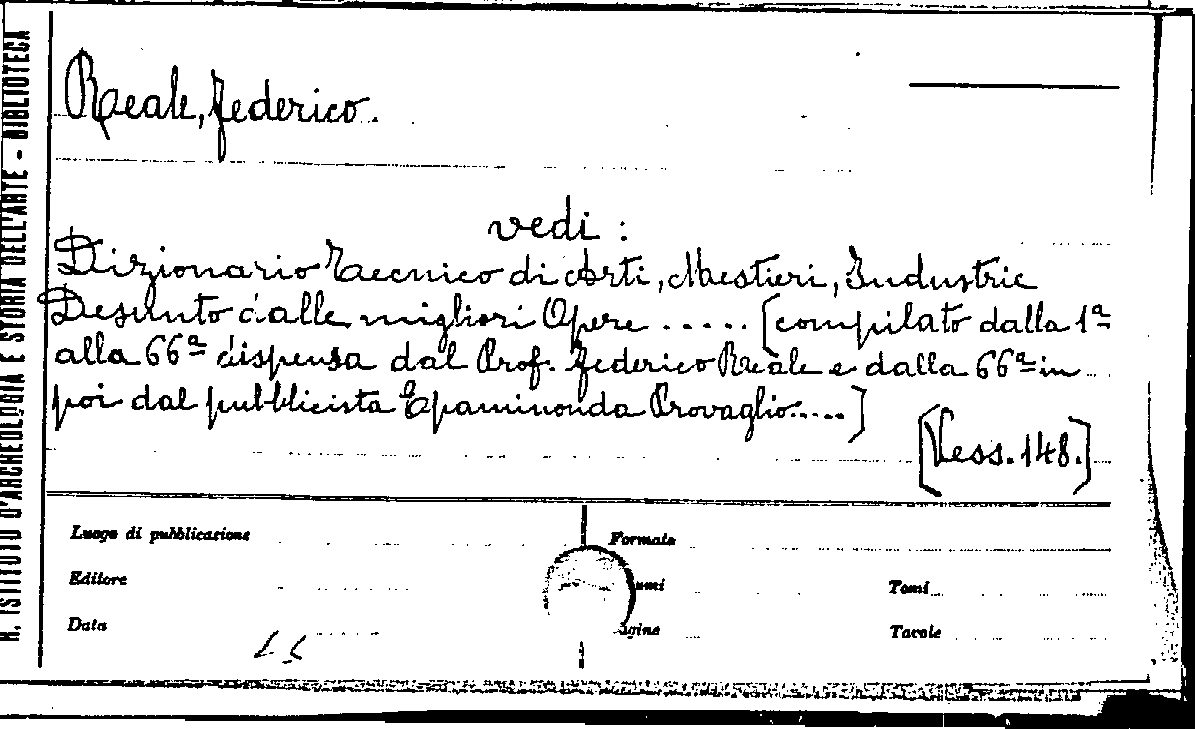 R. ISTITUTO D'ARCHEOLOGIA E STORIA DELL'ARTE - BIBLIOTECA
Reale, Federico.
vedi :
Dizionario Tecnico di Arti, Mestieri, Industrie
Desunto dalle migliori Opere ..... [compilato dalla 1ª
alla 66ª dispensa dal Prof. Federico Reale e dalla 66ª in
poi dal pubblicista Epaminonda Provaglio.....]
[Vess. 148.]
Luogo di pubblicazione
Formato
Editore
Tomi
Data
Tavole